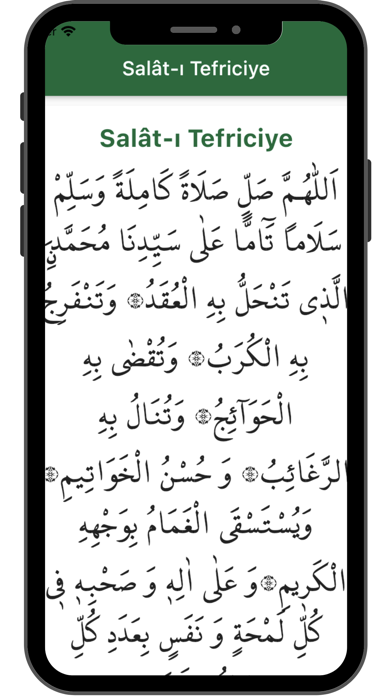 Salât-ı Tefriciye
Salât-ı Tefriciye
اَللّٰهُمَّ صَلِّ صَلَاةً كَامِلَةً وَسَلِّمْ
سَلَاماً تَٓامًّا عَلٰى سَيِّدِنَا مُحَمَّدٍۨ
الَّذ۪ى تَنْحَلُّ بِهِ الْعُقَدُ۞ وَتَنْفَرِجُ
بِهِ الْكُرَبُ۞ وَتُقْضٰى بِهِ
الْحَوَٓائِجُ۞ وَتُنَالُ بِهِ
الرَّغَائِبُ۞ وَ حُسْنُ الْخَوَاتِيمِ۞
وَيُسْتَسْقَى الْغَمَامُ بِوَجْهِهِ
الْكَرِيمِ۞ وَ عَلٰى اٰلِه۪ وَ صَحْبِه۪ ف۪ى
كُلِّ لَمْحَةٍ وَ نَفَسٍ بِعَدَدِ كُلِّ